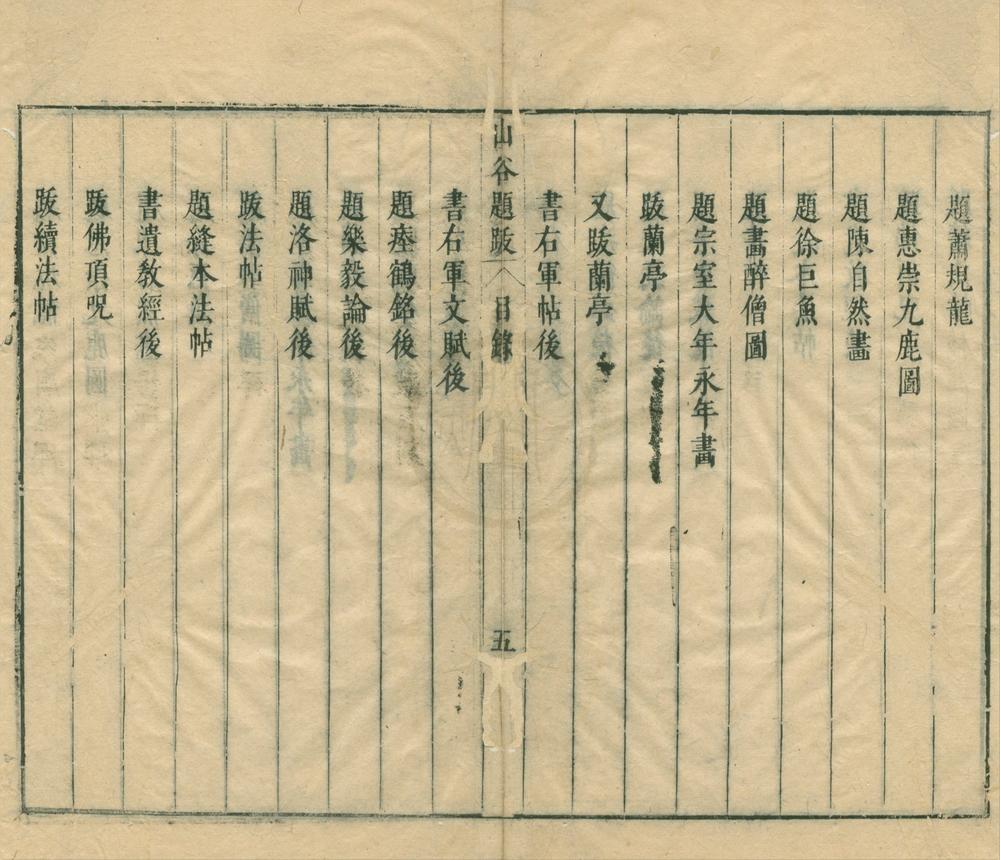 題蕭規龍
題惠崇九鹿圖
題陳自然畵
題徐巨魚
題畫醉僧圖
題宗室大年永年畫
䟦蘭亭
又䟦蘭亭
書右軍帖後
山谷題䟦 目錄 五
書右軍文賦後
題瘞鶴銘後
題樂毅論後
題洛神賦後
䟦法帖
題絳本法帖
書遺敎經後
䟦佛頂呪
䟦續法帖